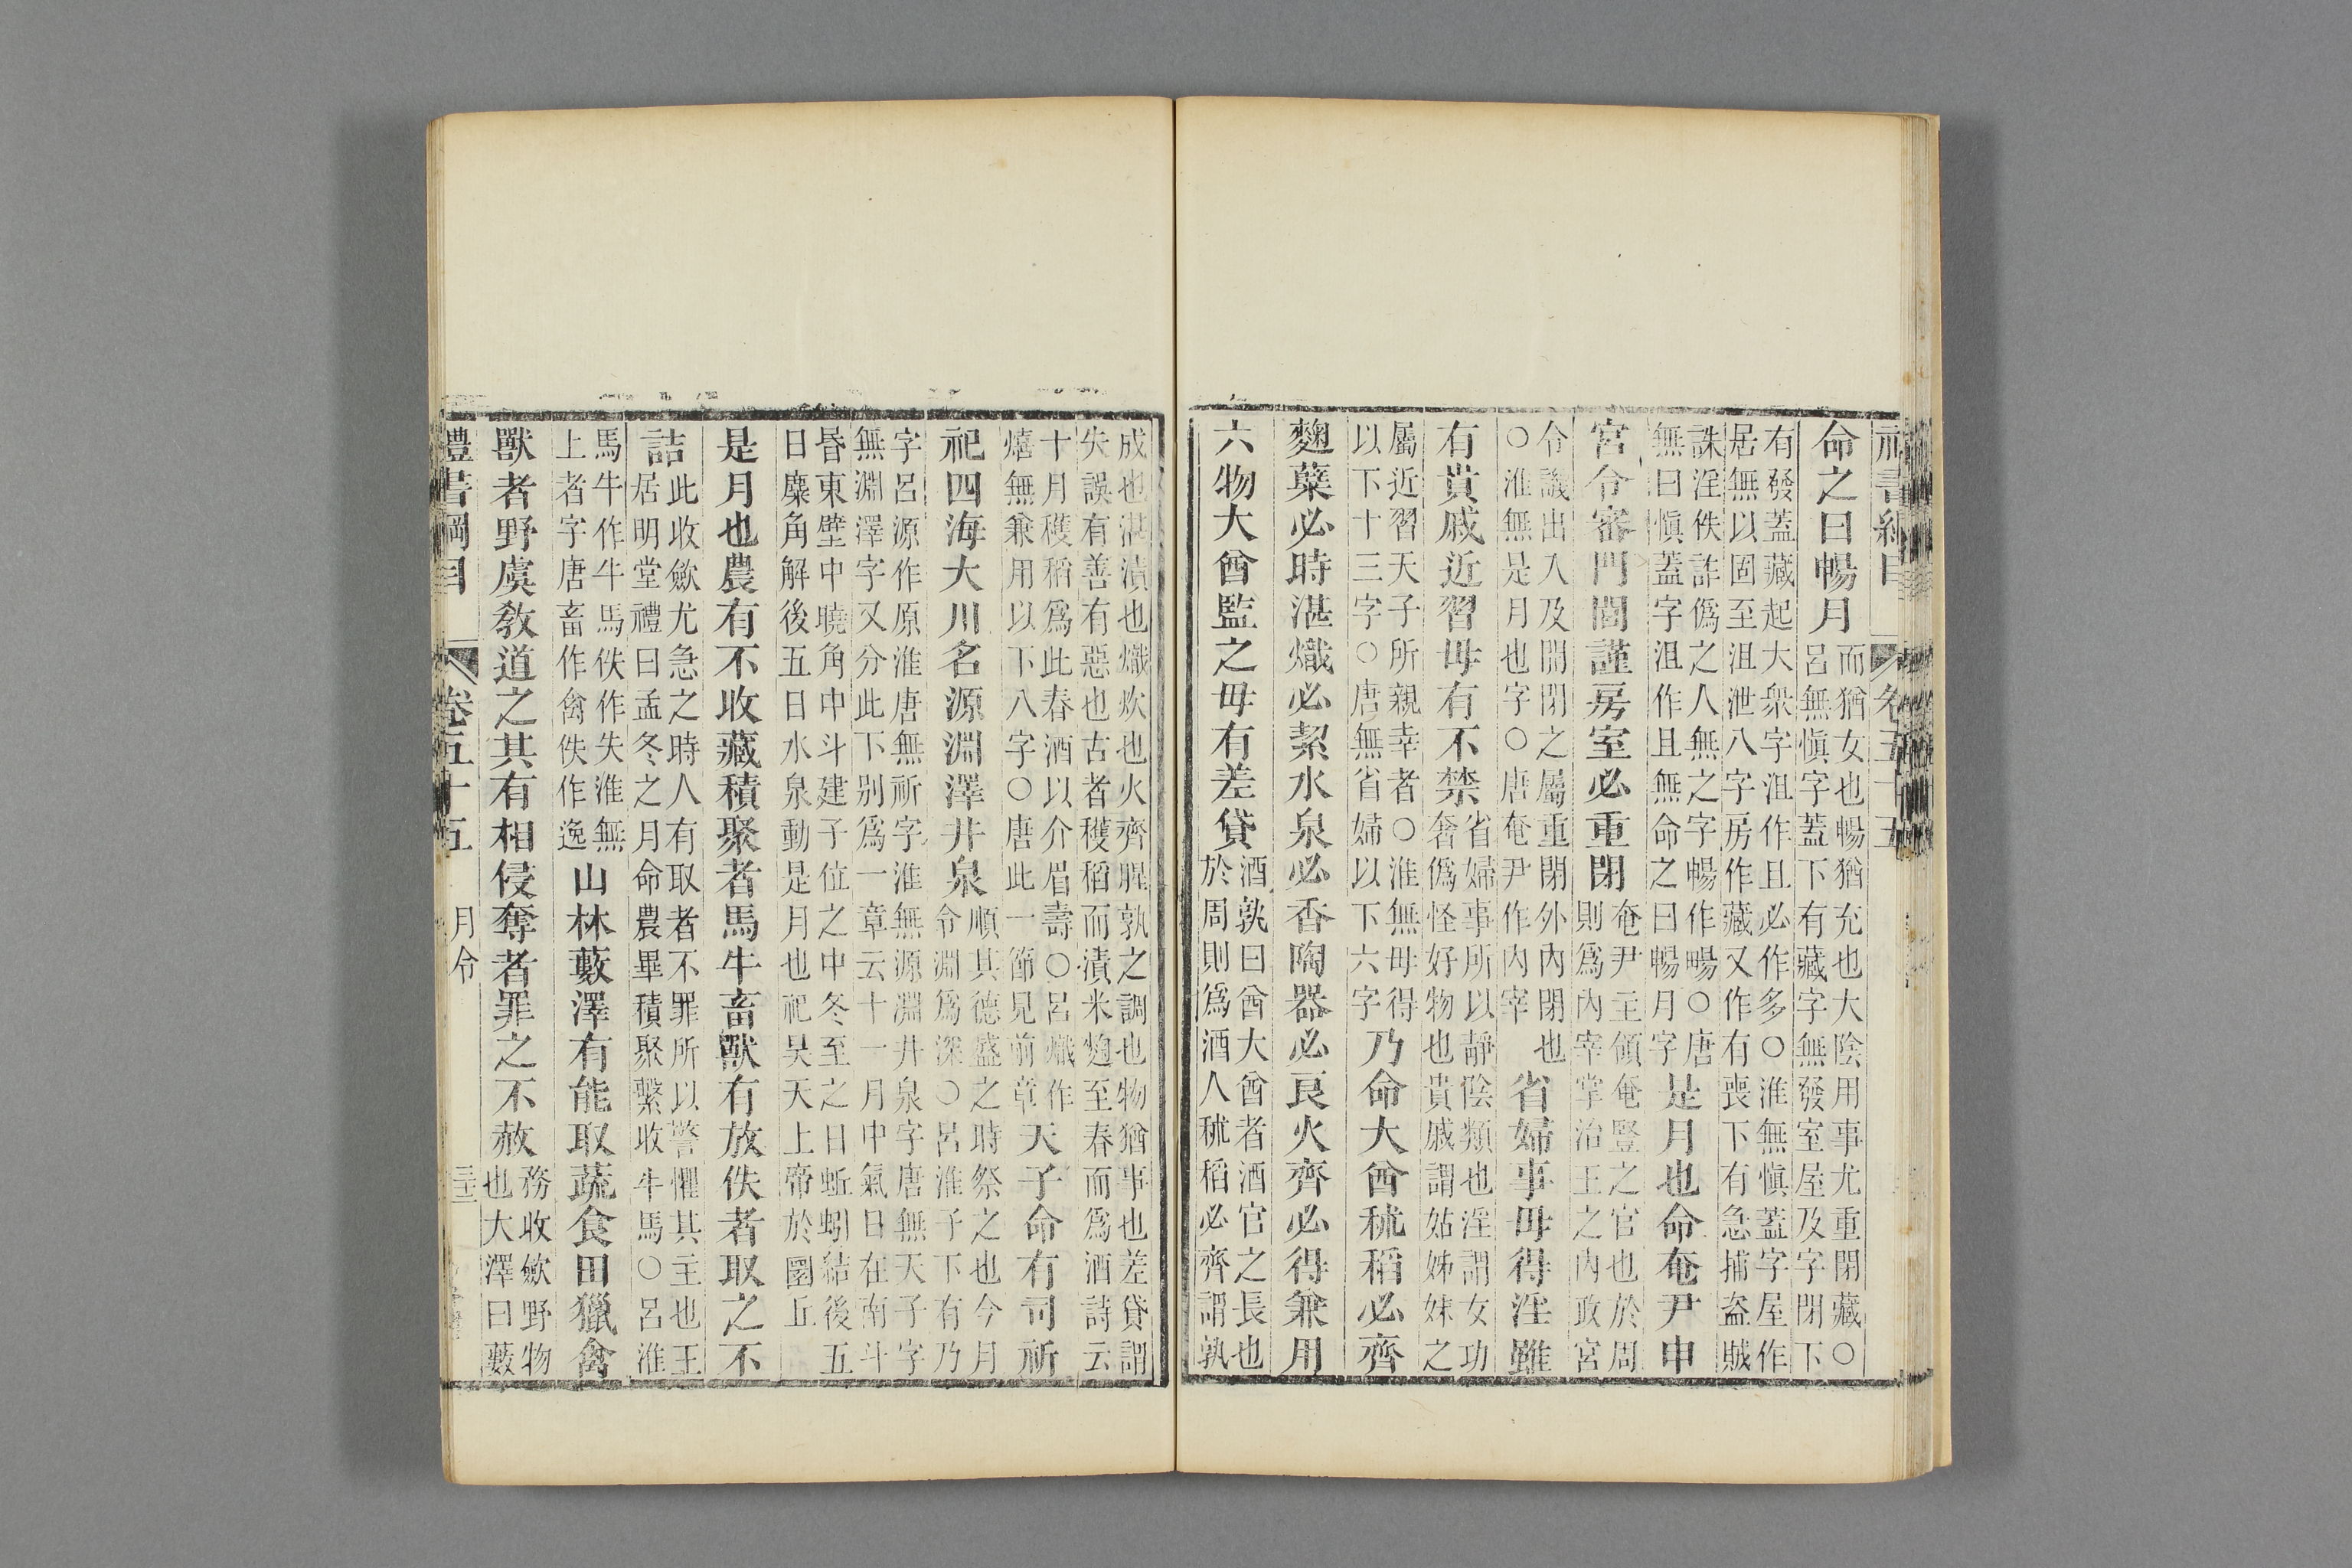 禮書綱目 卷五十五
命之曰暢月而猶女也暢猶充也大陰用事尤重閉藏○呂無愼字蓋下有藏字無發室屋及字閉下
有發蓋藏起大衆字沮作且必作多○淮無愼蓋字屋作居無以固至沮泄八字房作藏又作有喪下有急捕盜賊
誅淫佚詐僞之人無之字暢作暘○唐無曰愼蓋字沮作且無命之曰暢月字是月也命奄尹申
宮令審門閭謹房室必重閉奄尹主領奄豎之官也於周則爲內宰掌治王之內政宮
令譏出入及開閉之屬重閉外內閉也○淮無是月也字○唐奄尹作內宰省婦事毋得淫雖
有貴戚近習毋有不禁省婦事所以靜陰類也淫謂女功奢僞怪好物也貴戚謂姑姊妹之
屬近習天子所親幸者○淮無毋得以下十三字○唐無省婦以下六字乃命大酋秫稻必齊
麴蘗必時湛熾必絜水泉必香陶器必良火齊必得兼用
六物大酋監之毋有差貸酒孰曰酋大酋者酒官之長也於周則爲酒人秫稻必齊謂孰
成也湛漬也熾炊也火齊腥孰之調也物猶事也差貸謂失誤有善有惡也古者穫稻而漬米麴至春而爲酒詩云
十月穫稻爲此春酒以介眉壽○呂熾作熺無兼用以下八字○唐此一節見前章天子命有司祈
祀四海大川名源淵澤井泉順其德盛之時祭之也今月令淵爲深○呂淮子下有乃
字呂源作原淮唐無祈字淮無源淵井泉字唐無天子字無淵澤字又分此下别爲一章云十一月中氣日在南斗
昬東壁中曉角中斗建子位之中冬至之日蚯蚓結後五日麋角解後五日水泉動是月也祀昊天上帝於圜丘
是月也農有不收藏積聚者馬牛畜獸有放佚者取之不
詰此收歛尤急之時人有取者不罪所以警懼其主也王居明堂禮曰孟冬之月命農畢積聚繫收牛馬○呂淮
馬牛作牛馬佚作失淮無上者字唐畜作禽佚作逸山林藪澤有能取蔬食田獵禽
獸者野虞教道之其有相侵奪者罪之不赦務收歛野物也大澤曰藪
禮書綱目 卷五十五 月令